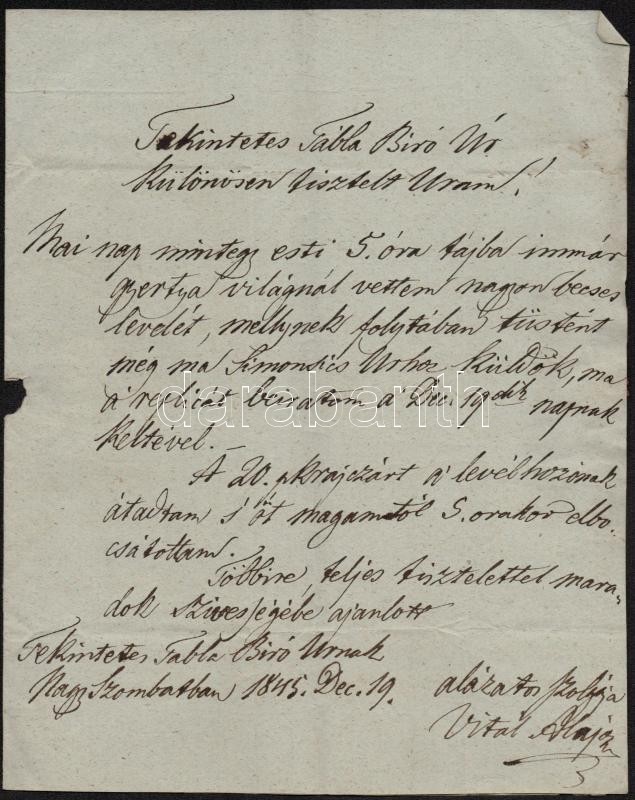 Tekintetes Tábla Biró Úr
különösen tisztelt Uram!
Mai nap mintegy esti 5. óra tájba immár
gyertya világnál vettem nagyon becses
levelét, mellynek folytában tüstént
még ma Simonsics Urhoz küldök, ma
a' replicát beiratom a Dec. 19dik napnak
keltével.–
A 20. pkrajczárt a' levélhozónak
átadtam s' őt magamtól 5. orakor elbo-
csátottam.
Többire, teljes tisztelettel mara-
dok szivességébe ajanlott
Tekintetes Tabla Biró Urnak
Nagy Szombatban 1845. Dec. 19.
alázatos szolgája
Vitál Alajos
darabanth